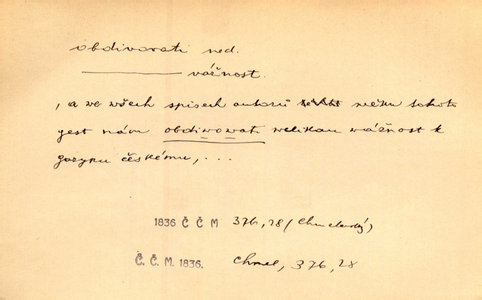 obdivovati ned.
vážnost.
, a we wšech spisech autorů wěku tohoto
gest nám obdiwowati welikau wážnost k
gazyku českému, . . .
1836 Č Č M 376,28 (Chmelenský)
Č. Č. M. 1836. Chmel, 376,28